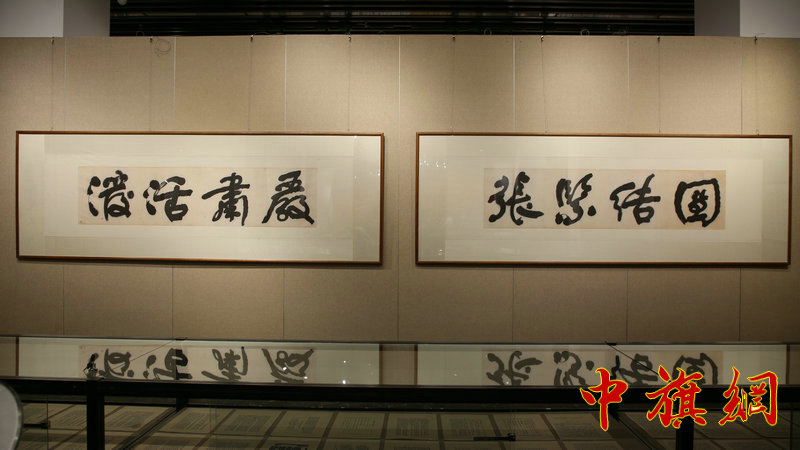 團結緊張
嚴肅活潑
中旗網